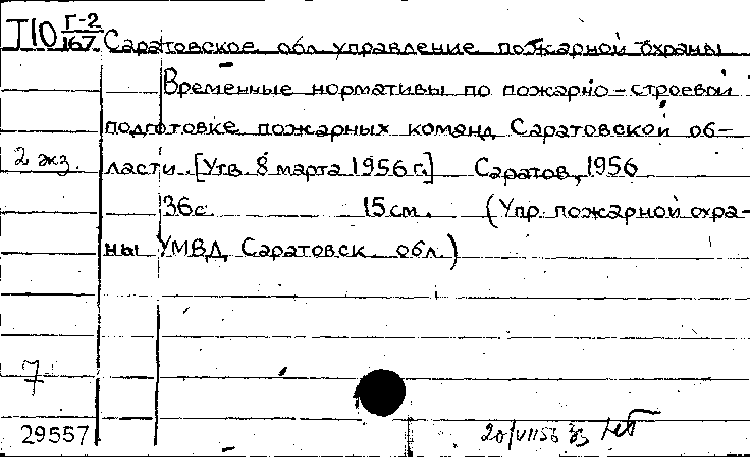 П10 Г-2/167 Саратовское обл управление пожарной охраны
Временные нормативы по пожарно-строевой
подготовке пожарных команд Саратовской об-
2 экз. ласти. [Утв. 8 марта 1956 г.] Саратов, 1956
36с. 15 см. (Упр. пожарной охра-
ны УМВД Саратовск. обл.)
7
29557 20/VII56